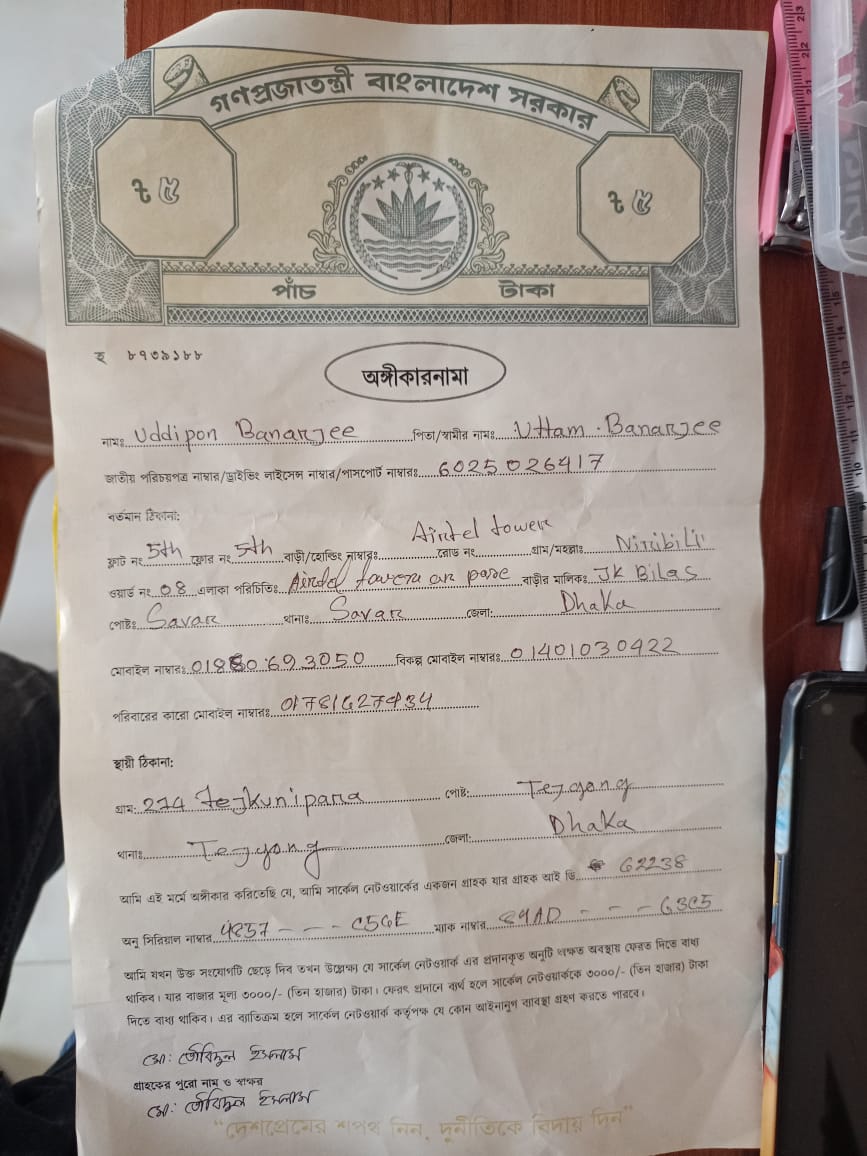 গণপ্রজাতন্ত্রী বাংলাদেশ সরকার
৳ ৫ ৳ ৫
পাঁচ টাকা
অঙ্গীকারনামা
নামঃ Uddipon Banarjee পিতা/স্বামীর নামঃ Uttam. Banarjee
জাতীয় পরিচয়পত্র নাম্বার/ড্রাইভিং লাইসেন্স নাম্বার/পাসপোর্ট নাম্বারঃ 6025026417
বর্তমান ঠিকানা:
ফ্লাট নং 5th ফ্লোর নং 5th বাড়ী/হোল্ডিং নাম্বারঃ Airtel tower রোড নং গ্রাম/মহল্লাঃ Niribili
ওয়ার্ড নং 08 এলাকা পরিচিতিঃ Airtel tower বাড়ীর মালিকঃ JK Bilas
পোষ্টঃ Savar থানাঃ Savar জেলা: Dhaka
মোবাইল নাম্বারঃ বিকল্প মোবাইল নাম্বারঃ 01401030422
পরিবারের কারো মোবাইল নাম্বারঃ
স্থায়ী ঠিকানা:
গ্রাম: 274 Tejkunipara পোষ্ট: Tejgong
থানাঃ Tejgong জেলা: Dhaka
আমি এই মর্মে অঙ্গীকার করিতেছি যে, আমি সার্কেল নেটওয়ার্কের একজন গ্রাহক যার গ্রাহক আই ডি 62238
অনু সিরিয়াল নাম্বার 4857 - - - C5GE ম্যাক নাম্বার - - -
আমি যখন উক্ত সংযোগটি ছেড়ে দিব তখন উল্লেক্ষ্য যে সার্কেল নেটওয়ার্ক এর প্রদানকৃত অনুটি অক্ষত অবস্থায় ফেরত দিতে বাধ্য
থাকিব। যার বাজার মূল্য ৩০০০/- (তিন হাজার) টাকা। ফেরৎ প্রদানে ব্যর্থ হলে সার্কেল নেটওয়ার্ককে ৩০০০/- (তিন হাজার) টাকা
দিতে বাধ্য থাকিব। এর ব্যতিক্রম হলে সার্কেল নেটওয়ার্ক কর্তৃপক্ষ যে কোন আইনানুগ ব্যবস্থা গ্রহণ করতে পারবে।
মো: তৌবিদুল ইসলাম
গ্রাহকের পুরো নাম ও স্বাক্ষর
মো: তৌবিদুল ইসলাম
"দেশপ্রেমের শপথ নিন, দুর্নীতিকে বিদায় দিন"